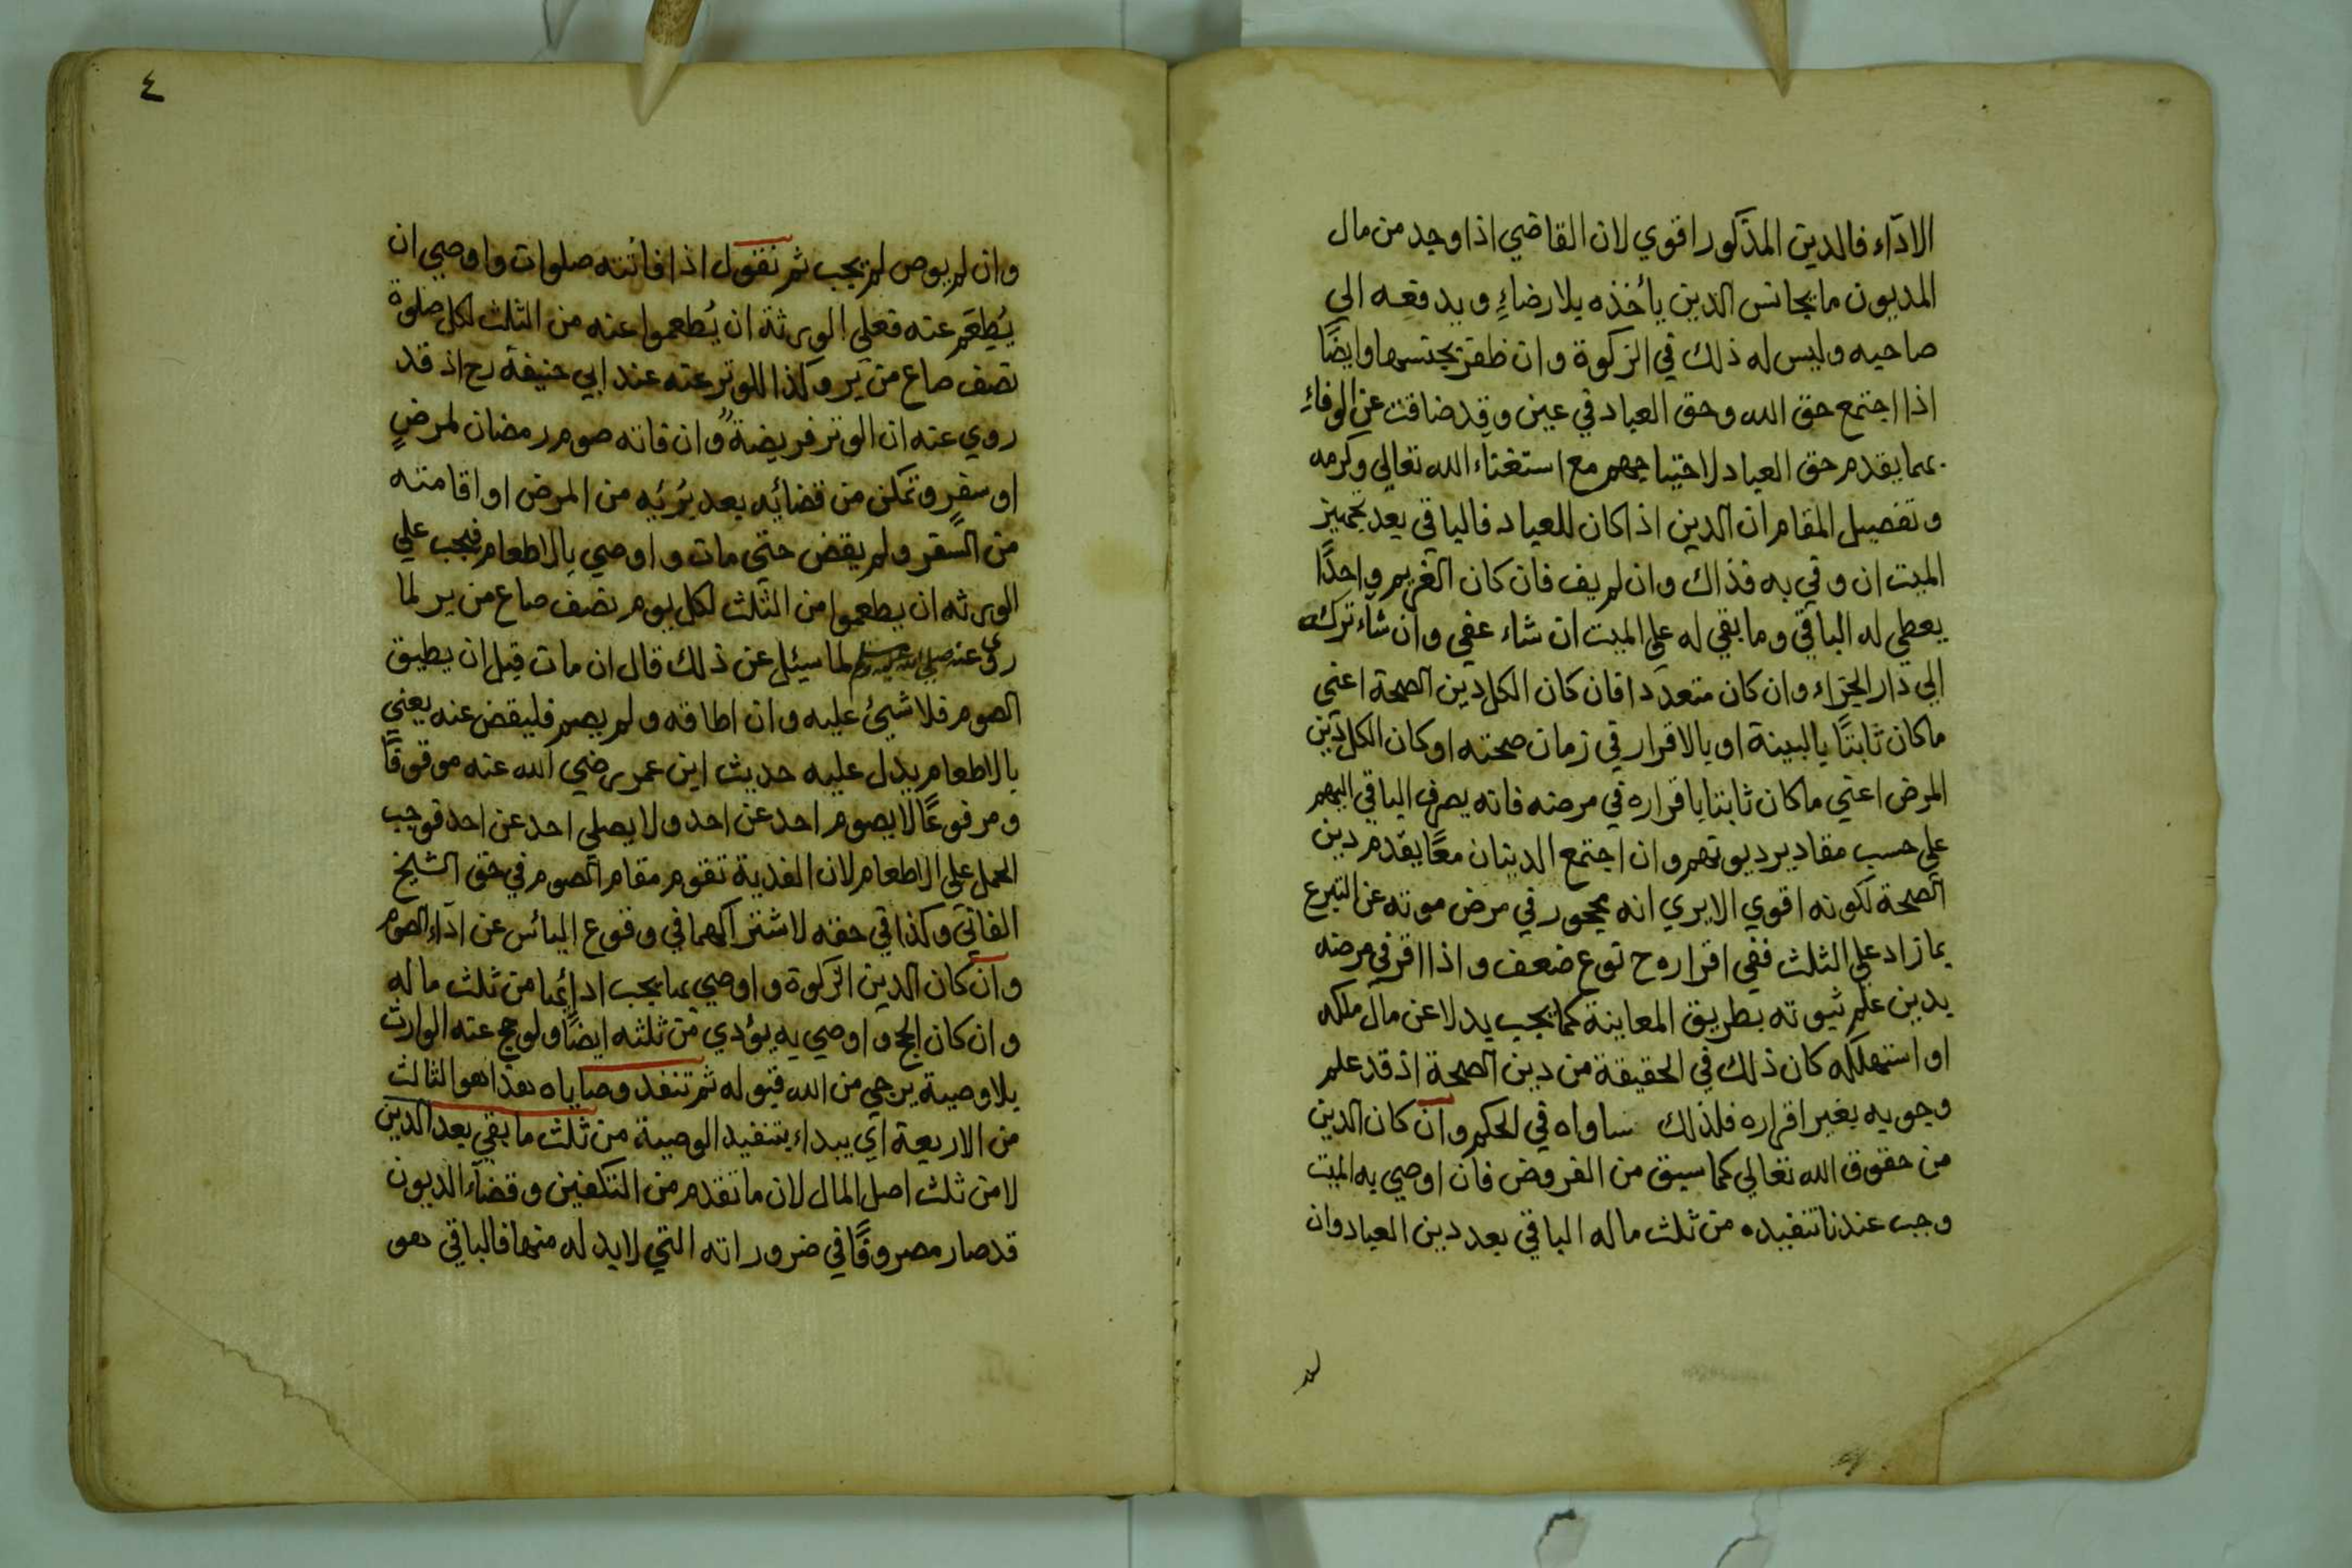 الاداء فالدين المذكور اقوي لان القاضي اذا وجد من مال
المديون ما يجانس الدين ياخذه بلا رضاءِ ويدفعه الي
صاحبه وليس له ذلك في الزكوة وان ظفر بجنسها وايضًا
اذا اجتمع حق الله وحق العباد في عين وقد ضاقت عن الوفاءِ
بهما يقدم حق العباد لاحتياجهم مع استغناء الله تعالي وكرمه
وتفصيل المقام ان الدين اذا كان للعباد فالباقي بعد تجهيز
الميت ان وفي به فذاك وان لم يف فان كان الغريم واحدًا
يعطي له الباقي وما بقي له علي الميت ان شاء عفي وان شاء تركه
الي دار الجزاء وان كان متعددا فان كان الكل دين الصحة اعني
ما كان ثابتًا بالبينة او بالاقرار في زمان صحته او كان الكل دين
المرض اعني ما كان ثابتا باقراره في مرضه فانه يصرف الباقي اليهم
علي حسب مقادير ديونهم وان اجتمع الدينان معًا يقدم دين
الصحة لكونه اقوي الا يري انه محجور في مرض موته عن التبرع
بما زاد علي الثلث ففي اقراره ح نوع ضعف واذا اقر في مرضه
بدين علم ثبوته بطريق المعاينة كما يجب بدلا عن مال ملكه
او استهلكه كان ذلك في الحقيقة من دين الصحة اذ قد علم
وجوبه بغير اقراره فلذلك ساواه في الحكم وان كان الدين
من حقوق الله تعالي كما سبق من الفروض فان اوصي به الميت
وجب عندنا تنفيذه من ثلث ماله الباقي بعد دين العباد وان
٤
وان لم يوص لم يجب ثم نقول اذا فائته صلوات واوصي ان
يُطعَم عنه فعلي الورثة ان يُطعموا عنه من الثلث لكل صلوة
نصف صاع من بر وكذا للوتر عنه عند ابي حنيفة رح اذ قد
روي عنه ان الوتر فريضة وان فاته صوم رمضان لمرضٍ
او سفرٍ وتمكن من قضائه بعد بُرئه من المرض او اقامته
من السفر ولم يقض حتي مات واوصي بالاطعام فيجب علي
الورثه ان يطعموا من الثلث لكل يوم نصف صاع من بر لما
روي عنه صلى الله عليه وسلم لما سيئل عن ذلك قال ان مات قبل ان يطيق
الصوم فلا شئ عليه وان اطاقه ولم يصم فليقض عنه يعني
بالاطعام يدل عليه حديث ابن عمر رضي الله عنه موقوفًا
ومرفوعًا لا يصوم احد عن احد ولا يصلي احد عن احد فوجب
الحمل علي الاطعام لان الفدية تقوم مقام الصوم في حق الشيخ
الفاني وكذا في حقه لاشتراكهما في وقوع اليائس عن اداء الصوم
وان كان الدين الزكوة واوصي بما يجب ادائها من ثلث ماله
وان كان الحج واوصي به يؤدي من ثلثه ايضًا ولو حج عنه الوارث
بلا وصية يرجي من الله قبوله ثم تنفد وصاياه هذا هو الثالث
من الاربعة اي يبداء بتنفيد الوصية من ثلث ما بقي بعد الدين
لا من ثلث اصل المال لان ما تقدم من التكفين وقضاء الديون
قد صار مصروفًا في ضروراته التي لا بد له منها فالباقي هو